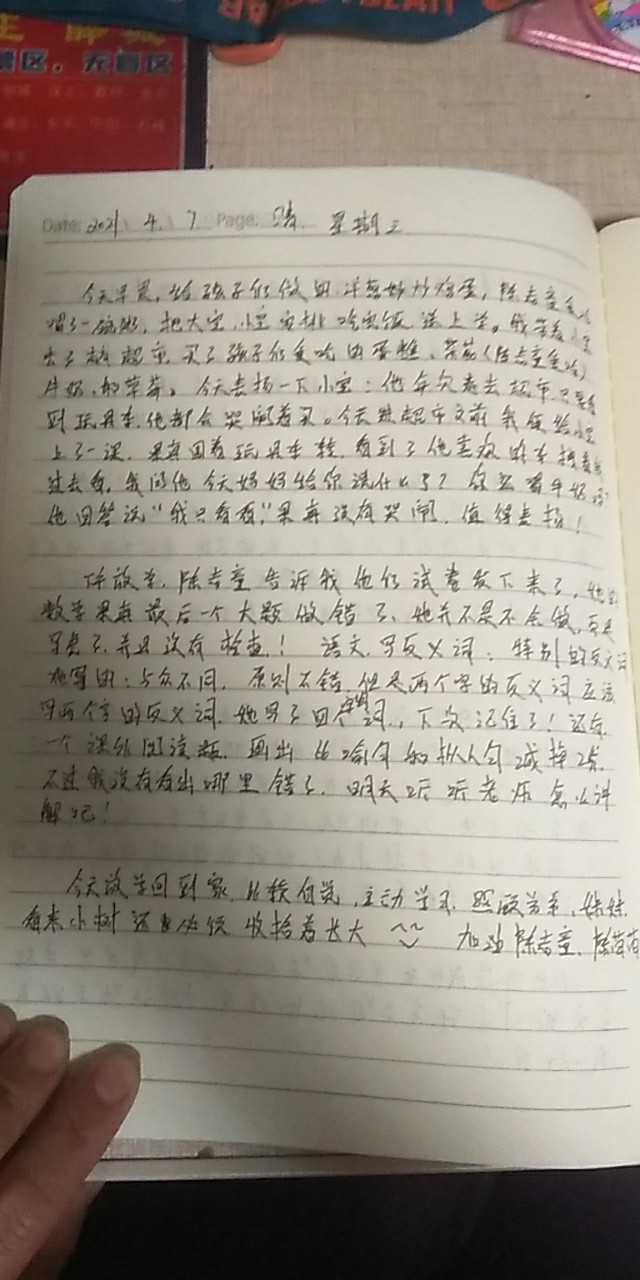 Date: 2021 4. 7 Page: 晴. 星期三
今天早晨,给孩子们做的洋葱炒鸡蛋,陈
喝了一碗粥,把大宝、小宝安排吃完饭送上学。我带着小宝
去了趟超市,买了孩子们爱吃的蛋糕、
牛奶,和草莓。今天表扬一下小宝:他每次去超市,只要看
到玩具车,他都会哭闹着买。今天进超市之前我便给小宝
上了一课,果真围着玩具车转,看到了他喜欢的车
过去看,我问他今天妈妈给你说什么了?
他回答说“我只看看,”果真没有哭闹,值得表扬!
下午放学,陈 告诉我他们试卷发下来了,她的
数学果真最后一个大题做错了,她并不是不会做,而是
写急了,并且没有检查! 语文,写反义词:特别的反义词
她写的:与众不同,原则不错,但是两个字的反义词应该
写两个字的反义词,她写了四个字词,下次记住了!还有
一个课外阅读题,画出比喻句和拟人句减掉2点
不过我没有看出哪里错了,明天听听老师怎么讲
解吧!
今天放学回到家,比较自觉,主动学习,照顾弟弟、妹妹,
看来小树 收拾着长大 加油陈